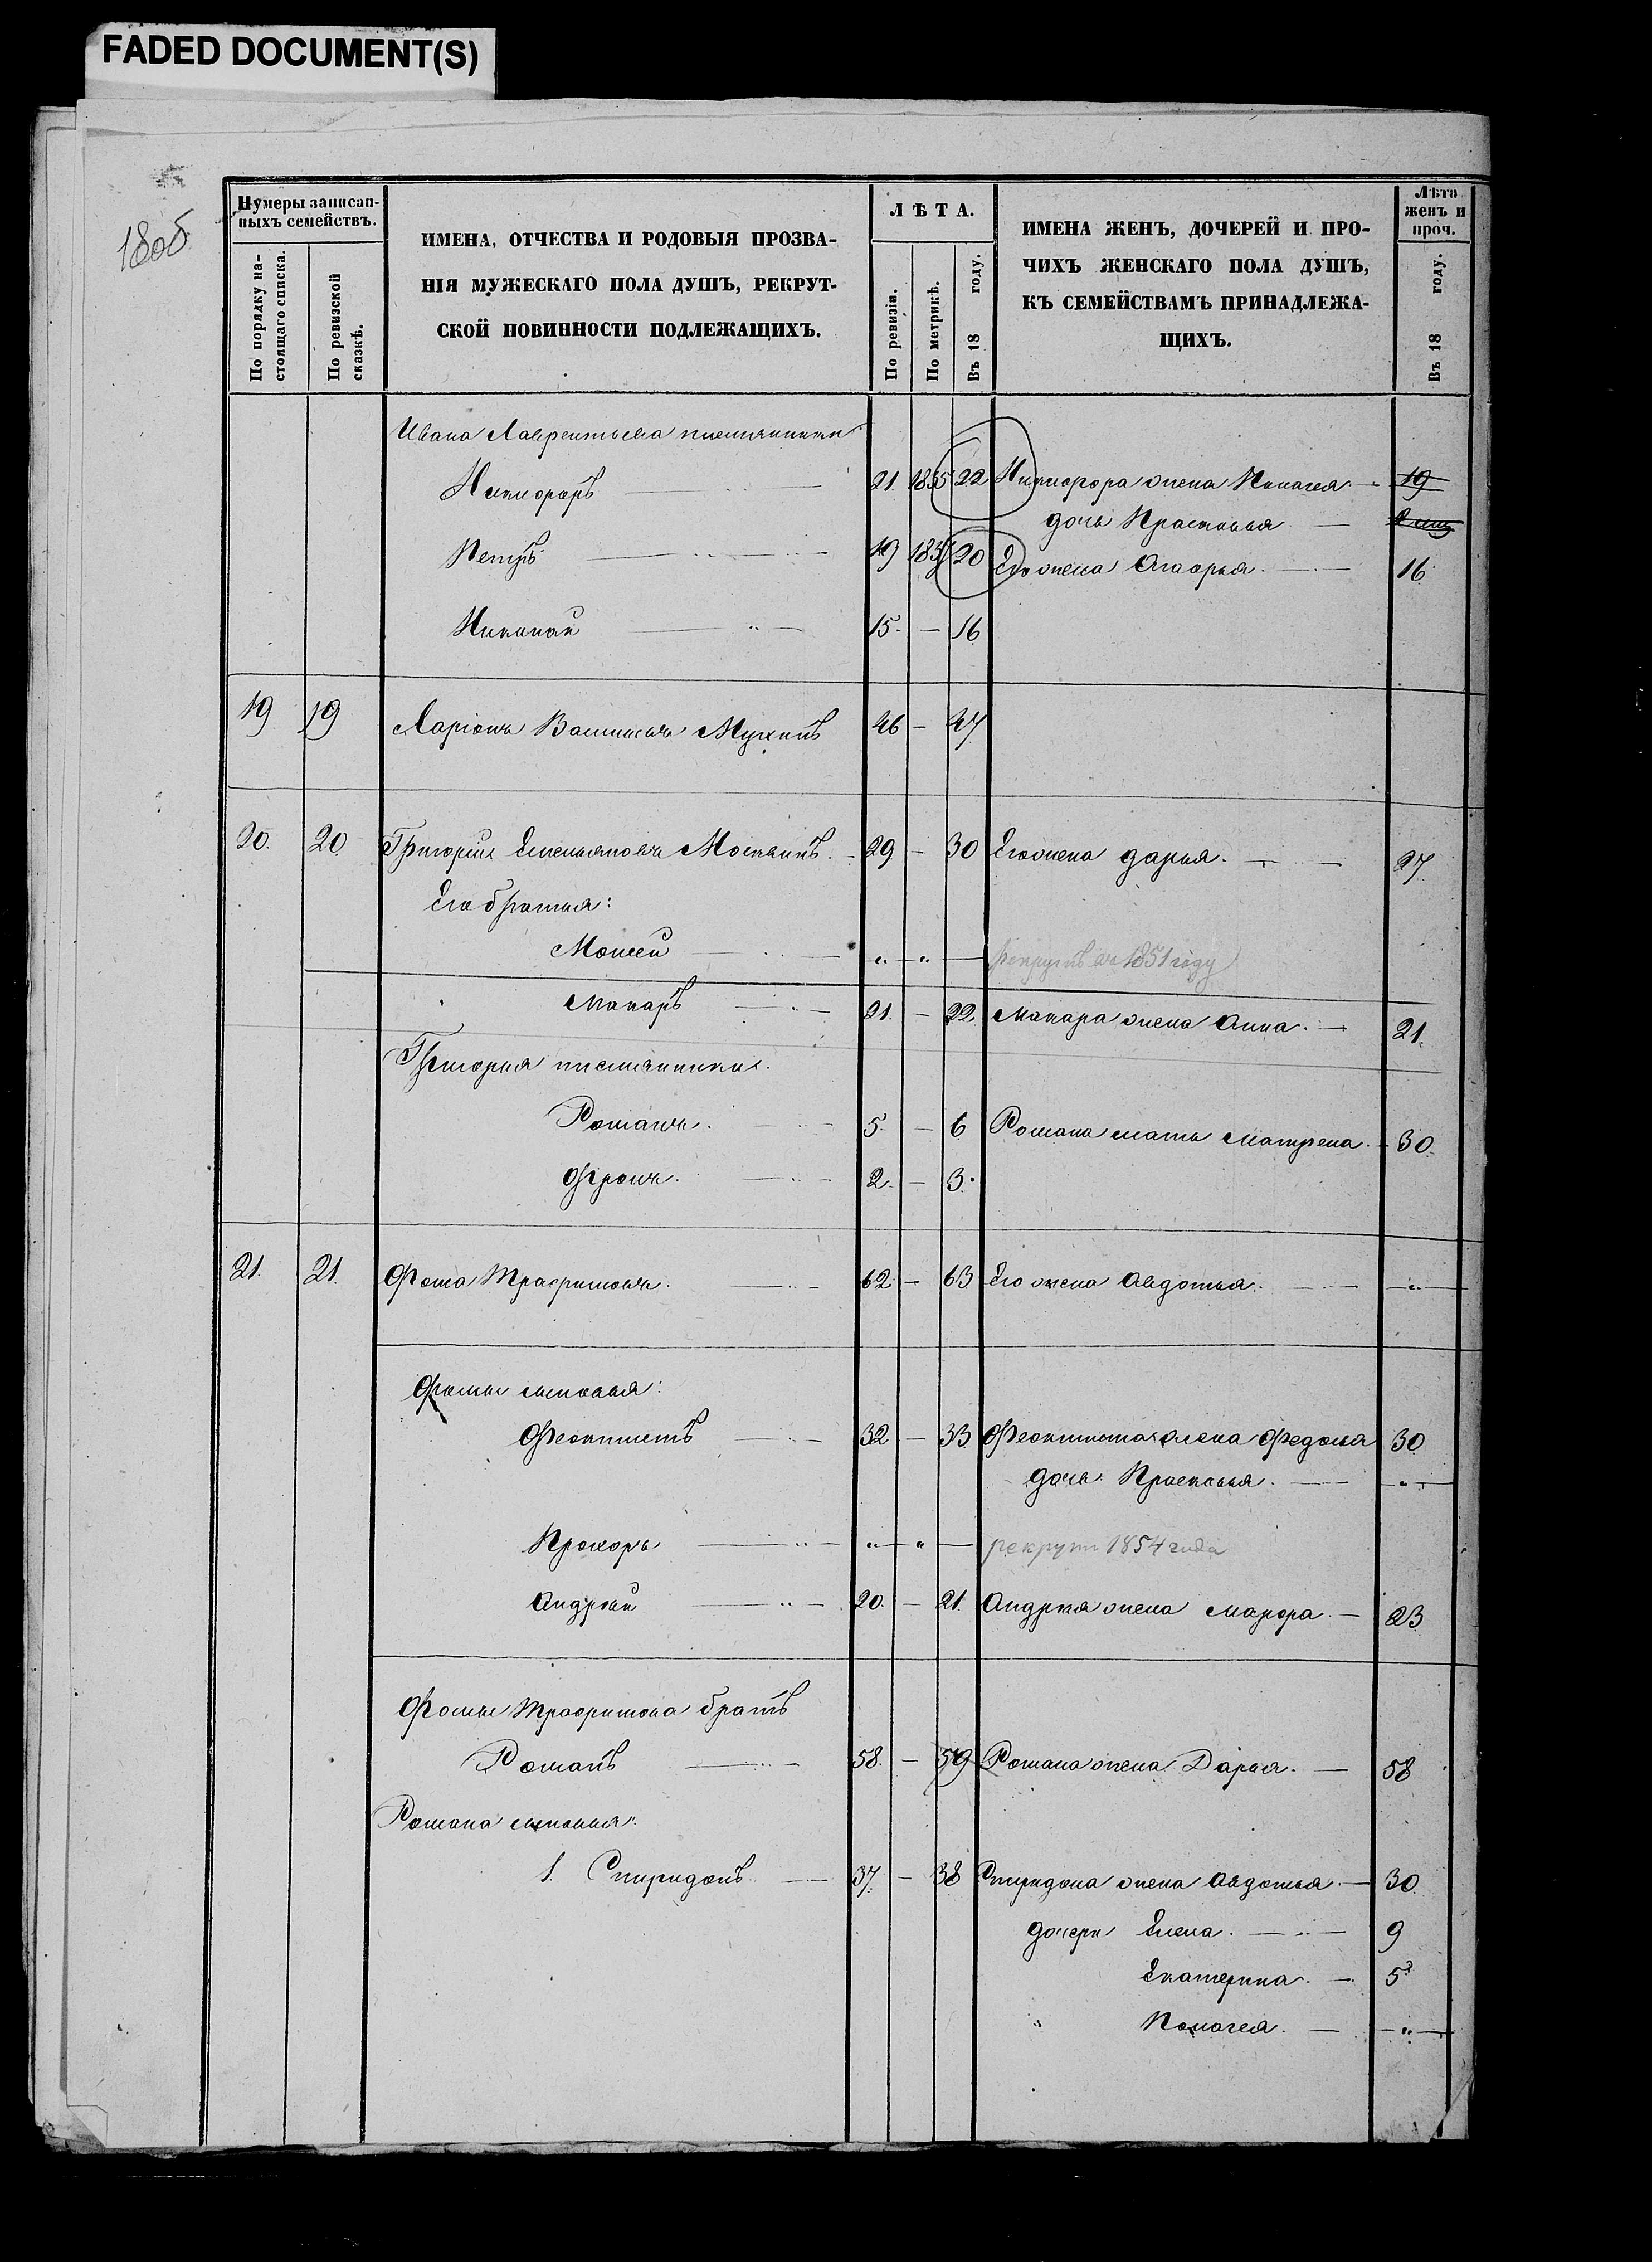 FADED DOCUMENT(S)
180об
Нумеры записан-
ныхъ семействъ.
По порядку на-
стоящаго списка.
По ревизской
сказкѣ.
ИМЕНА, ОТЧЕСТВА И РОДОВЫЯ ПРОЗВА-
НІЯ МУЖЕСКАГО ПОЛА ДУШЪ, РЕКРУТ-
СКОЙ ПОВИННОСТИ ПОДЛЕЖАЩИХЪ.
ЛѢТА.
По ревизіи.
По метрикѣ.
Въ 18 году.
ИМЕНА ЖЕНЪ, ДОЧЕРЕЙ И ПРО-
ЧИХЪ ЖЕНСКАГО ПОЛА ДУШЪ,
КЪ СЕМЕЙСТВАМЪ ПРИНАДЛЕЖА-
ЩИХЪ.
Лѣта
женъ и
проч.
Въ 18 году.
Ивана Лаврентьева племянники
Никифоръ 21. 1835 22 Никифора жена Пелагея 19
дочь Прасковья
Петръ 19 183 20 Его жена Агафья 16
Николай 15. — 16
19 19 Ларіонъ Васильевъ Мухинъ 46 — 47
20. 20 Григорій Емельяновъ Москвинъ 29 — 30 Его жена Дарья. 27
Его братья:
Моисей „ „ — рекрутъ въ 1851 году
Макаръ 21. — 22. Макара жена Анна. 21.
Григорья племянники.
Романъ. 5. — 6 Романа мать Матрена. 30.
Фролъ. 2. — 3.
21. 21. Фома Трафимовъ. 62 — 63 Его жена Авдотья. „
Фомы сыновья:
Феоктистъ 32 — 33 Феоктиста жена Федосья 30
дочь Прасковья. „
Прохоръ „ „ — рекрутъ 1854 года
Андрей 20. — 21. Андрея жена Марфа. 23
Фомы Трафимова братъ
Романъ 58. — 59 Романа жена Дарья. 58
Романа сыновья:
1. Спиридонъ 37. — 38 Спиридона жена Авдотья 30.
дочери Елена. 9
Екатерина. 5
Пелагея. „